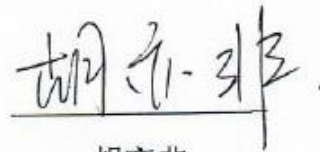 胡亦非
胡亦非